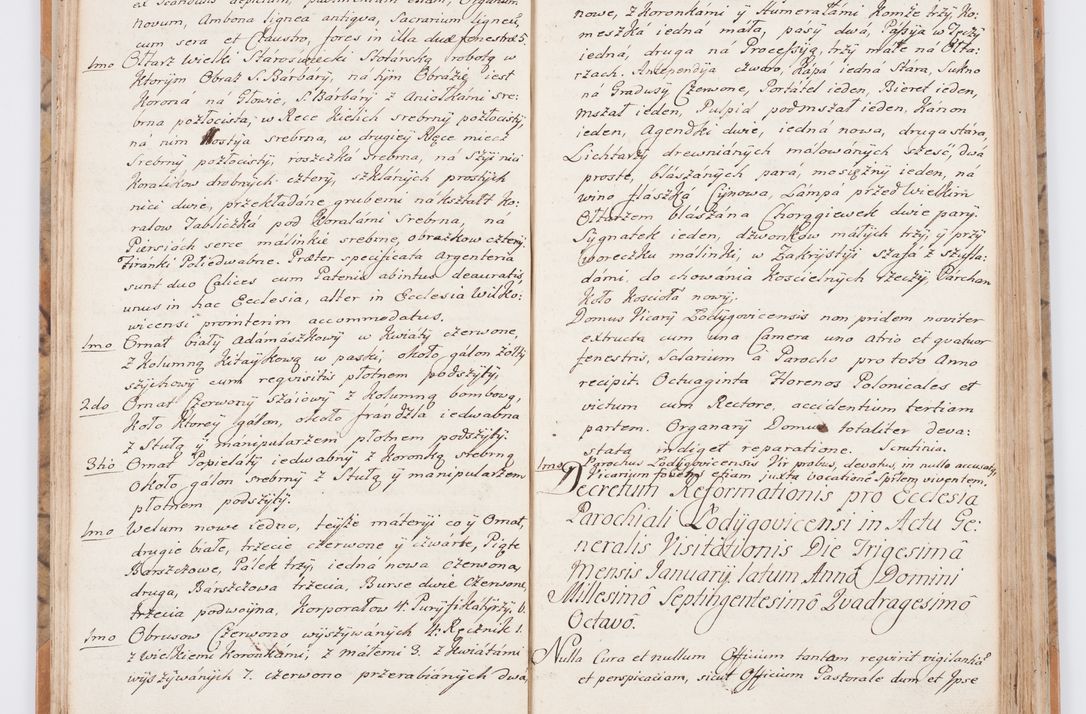 novum, Ambona lignea antiqva, Sacrarium ligneũ
cum sera et Claustro, fores in illa duæ fenestræ 5.
1mo Ołtarz Wielki Stároswiecki Stolárską robotą w
ktorym Obraz S. Bárbáry, ná tym Obrázie iest
Korona ná Głowie, S. Bárbáry z Aniołkámi sre-
brna pozłocista, w Ręce Kielich srebrny pozłocisty,
ná nim Hostyia srebrna, w drugiey Ręce miecz
srebrny pozłocisty, roszczká srebrna, ná szyi nici
Koralikow drobnych cztery, szklánych prostych
nici dwie, przekładáne grubemi nákształt Ko-
ralow Tabliczká pod Koralámi srebrna, ná
Piersiách serce málinkie srebrne, obrazkow cztery,
Firánki Poliedwabne. Præter specificata Argenteria
sunt duo Calices cum Patenis abintus deauratis,
unus in hac Ecclesia, alter in Ecclesia Wilko-
wicensi prointerim accommodatus.
1mo Ornat biáły Adámaszkowy w Kwiáty czerwone,
z Kolumną Kitaykową w paski, około galon żołty
szychowy cum reqvisitis płotnem podszyty,
2do Ornat Czerwony száiowy z Kolumną bombową,
koło ktorey galon, około frandzla iedwabna
z Stułą ÿ manipularzem płotnem podszyty.
3tio Ornat Popieláty iedwabny z Koronką srebrną
Około galon srebrny z Stułą ÿ manipularzem
płotnem podszyty.
1mo Welum nowe Iedno, teyże máteryi co ÿ Ornat,
drugie białe, trzecie czerwone ÿ czwárte, Piąte
Bárszczowe, Palek trzy, iedná nowa czerwona,
druga, Bárszczowa trzecia, Burse dwie Czerwone,
trzecia podwoyna, Korporałow 4. Puryfikátyrzy. 6.
1mo Obrusow Czerwono wyszywánych 4. Ręcznik 1.
z wielkiemi Koronkámi, z máłemi 3. z kwiatámi
wyszywánych 7. czerwono przerabiánych dwá,
nowe, z koronkámi ÿ Humerałámi Komże trzy, Ko-
meszká iedná máła, pásy dwá, Pássya w Tęczy
iedná, druga ná Processyą, trzy máłe ná Ołta-
rzach. Antependya czworo, Kápa iedná Stára, Sukno
ná Gradusy Czerwone, Portátel ieden, Bieret ieden,
mszał ieden, Pulpid podmszał ieden, Kánon
ieden, Agendki dwie, iedná nowa, druga stára,
Lichtarzy drewniánych málowánych sześć, dwá
proste, blaszánych pará, mosiężny ieden, ná
wino flászká Cynowa, Lámpá przed Wielkim
Ołtarzem blászána Chorągiewek dwie pary.
Sygnatek ieden, dzwonkow máłych trzy, ÿ przy
Woreczku málinki, w Zakrystyi szafá z szufla-
dámi do chowánia Koscielnych rzeczy, Parchan
koło Kościołá nowy,
Domus Vicarÿ Łodygovicensis non pridem noviter
extructa cum una Camera uno Atrio et qvatuor
fenestris, Solarium à Parocho pro toto Anno
recipit. Octuaginta Florenos Polonicales et
victum cum Rectore, accidentium tertiam
partem. Organarÿ Domus totaliter deva-
stata indiget reparatione. Scrutinia.
1mo Parochus Łodygovicensis Vir probus, devotus, in nullo accusatꝰ,
Vicarium fovens etiam juxta vocationē Spūlem viventem.
Decretum Reformationis pro Ecclesia
Parochiali Łodygovicensi in Actu Ge-
neralis Visitationis Die Trigesimâ
Mensis Ianuarÿ latum Annô Domini
Millesimô Septingentesimô Qvadragesimô
Octavô.
Nulla Cura et nullum Officium tantam reqvirit vigilantiã
et perspicaciam, sicut Officium Pastorale dum et Ipse